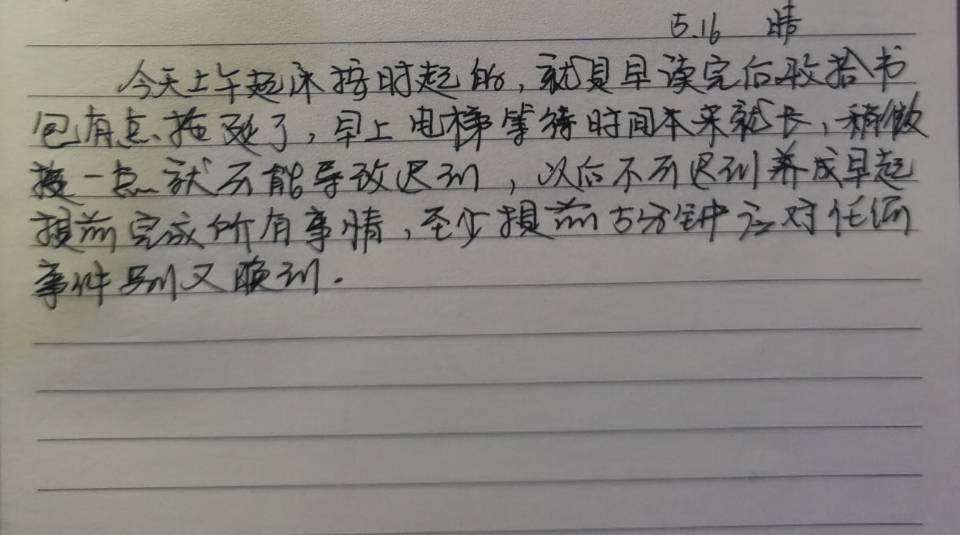 5.16 晴
今天上午起床按时起的,就是早读完后收拾书
包有点拖延了,早上电梯等待时间本来就长,稍微
慢一点就可能导致迟到,以后不可迟到养成早起
提前完成所有事情,至少提前5分钟应对任何
事件别又晚到.